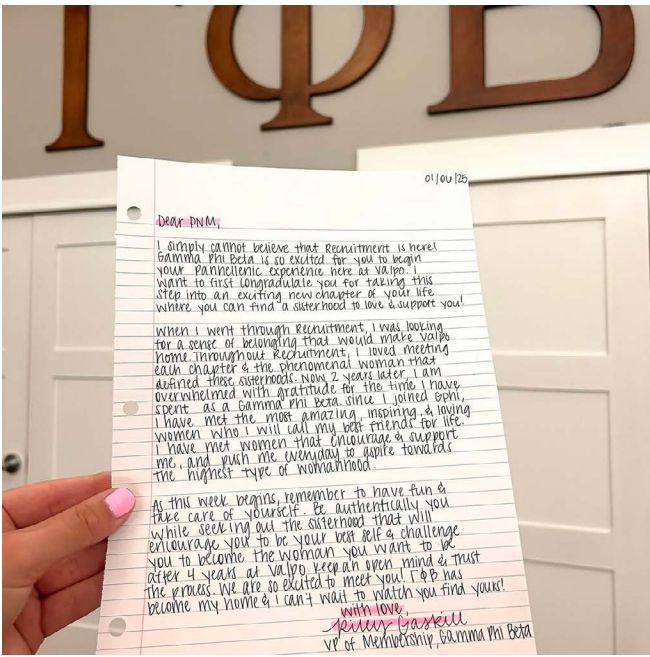 ΓΦΒ
01/06/25
Dear PNM,
I simply cannot believe that Recruitment is here!
Gamma Phi Beta is so excited for you to begin
your Panhellenic experience here at Valpo. I
want to first congradulate you for taking this
step into an exciting new chapter of your life
where you can find a sisterhood to love & support you!
When I went through Recruitment, I was looking
for a sense of belonging that would make Valpo
home. Throughout Recruitment, I loved meeting
each chapter & the phenomenal woman that
defined these sisterhoods. Now 2 years later, I am
overwhelmed with gratitude for the time I have
spent as a Gamma Phi Beta. Since I joined GPhi,
I have met the most amazing, inspiring, & loving
women who I will call my best friends for life.
I have met women that encourage & support
me, and push me everyday to aspire towards
the highest type of womanhood.
As this week begins, remember to have fun &
take care of yourself. Be authentically you
while seeking out the sisterhood that will
encourage you to be your best self & challenge
you to become the woman you want to be
after 4 years at Valpo. Keep an open mind & trust
the process. We are so excited to meet you! ΓΦΒ has
become my home & I can't wait to watch you find yours!
with love,
Riley Gaskill
VP of Membership, Gamma Phi Beta